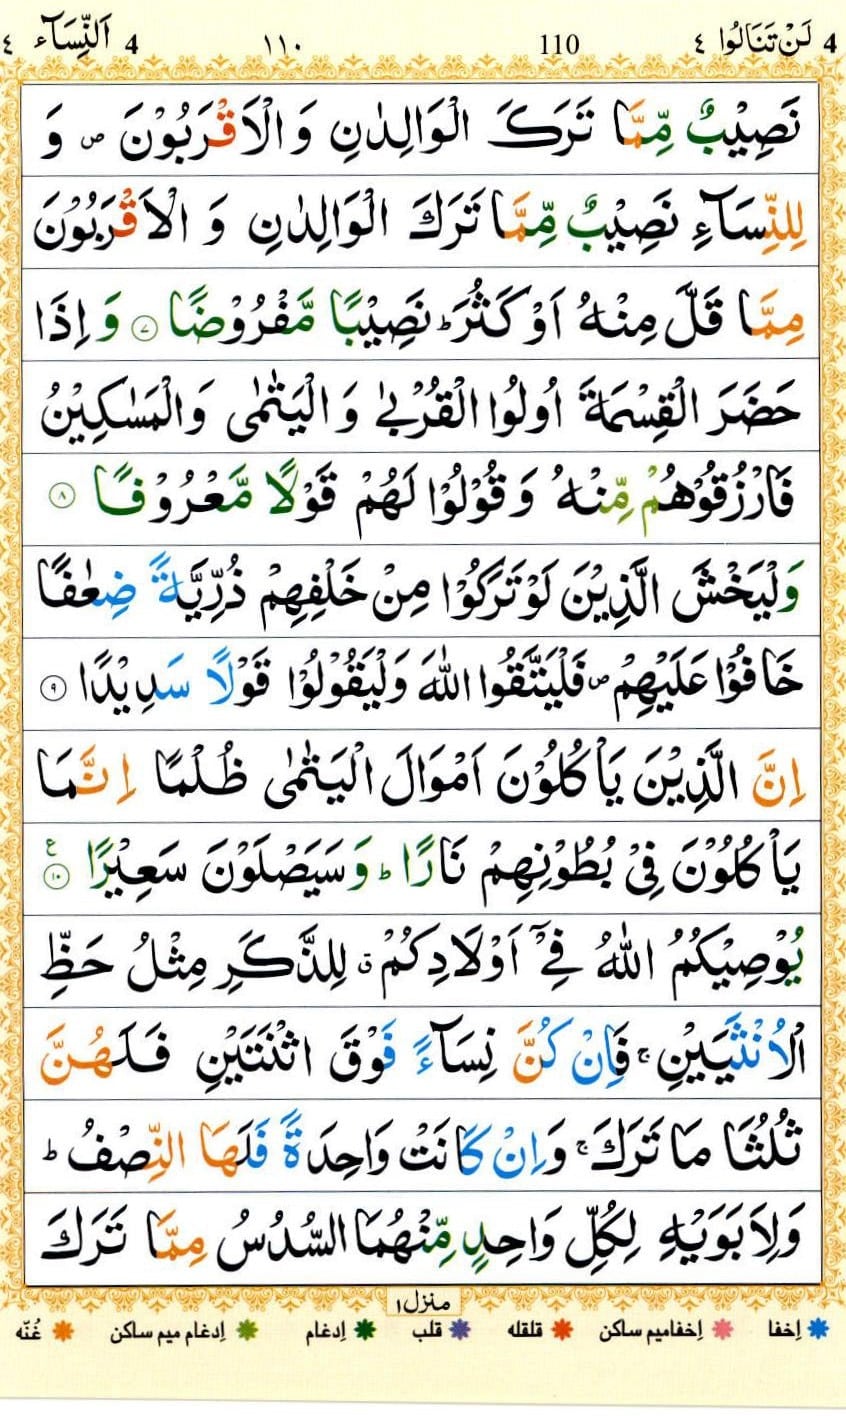 4 لَنْ تَنَالُوا ٤ 110 ١١٠ 4 اَلنِّسَآء ٤
نَصِيْبٌ مِّمَّا تَرَكَ الْوَالِدٰنِ وَ الْاَقْرَبُوْنَ ۪ وَ
لِلنِّسَآءِ نَصِيْبٌ مِّمَّا تَرَكَ الْوَالِدٰنِ وَ الْاَقْرَبُوْنَ
مِمَّا قَلَّ مِنْهُ اَوْ كَثُرَ ؕ نَصِيْبًا مَّفْرُوْضًا ۷ وَ اِذَا
حَضَرَ الْقِسْمَةَ اُولُوا الْقُرْبٰى وَ الْيَتٰمٰى وَ الْمَسٰكِيْنُ
فَارْزُقُوْهُمْ مِّنْهُ وَ قُوْلُوْا لَهُمْ قَوْلًا مَّعْرُوْفًا ۸
وَلْيَخْشَ الَّذِيْنَ لَوْ تَرَكُوْا مِنْ خَلْفِهِمْ ذُرِّيَّةً ضِعٰفًا
خَافُوْا عَلَيْهِمْ ۪ فَلْيَتَّقُوا اللّٰهَ وَلْيَقُوْلُوْا قَوْلًا سَدِيْدًا ۹
اِنَّ الَّذِيْنَ يَاْكُلُوْنَ اَمْوَالَ الْيَتٰمٰى ظُلْمًا اِنَّمَا
يَاْكُلُوْنَ فِيْ بُطُوْنِهِمْ نَارًا ؕ وَ سَيَصْلَوْنَ سَعِيْرًا ۱۰ ع
يُوْصِيْكُمُ اللّٰهُ فِيْۤ اَوْلَادِكُمْ ۗ لِلذَّكَرِ مِثْلُ حَظِّ
الْاُنْثَيَيْنِ ۚ فَاِنْ كُنَّ نِسَآءً فَوْقَ اثْنَتَيْنِ فَلَهُنَّ
ثُلُثَا مَا تَرَكَ ۚ وَ اِنْ كَانَتْ وَاحِدَةً فَلَهَا النِّصْفُ ؕ
وَ لِاَبَوَيْهِ لِكُلِّ وَاحِدٍ مِّنْهُمَا السُّدُسُ مِمَّا تَرَكَ
منزل۱
اِخفا اِخفامیم ساکن قلقله قلب اِدغام اِدغام میم ساکن غُنّه